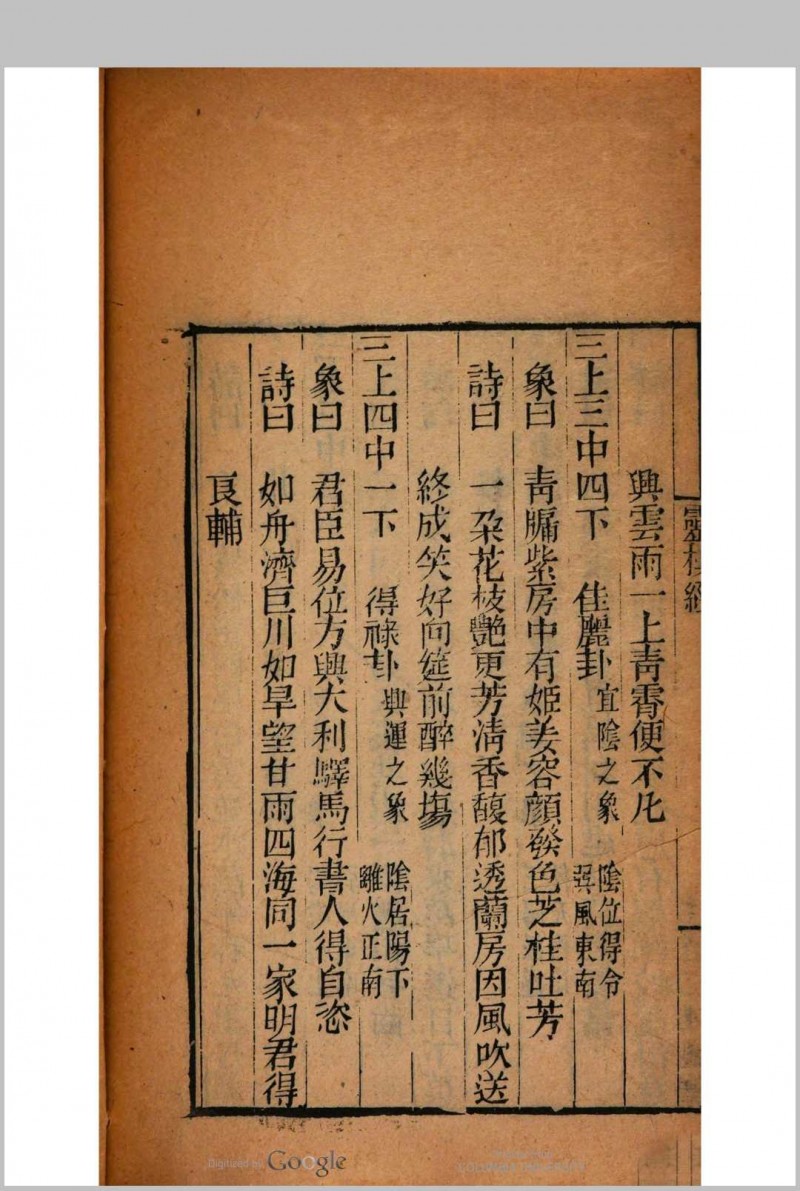 靈棋經
興雲雨一上靑霄便不凡
三上三中四下　佳麗卦　宜陰之象　陰位得令　巽風東南
象曰　靑牖紫房中有姬姜容顏發色芝桂吐芳
詩曰　一朶花枝艷更芳淸香馥郁透蘭房因風吹送
終成笑好向筵前醉幾塲
三上四中一下　得祿卦　興運之象　陰居陽下　離火正南
象曰　君臣易位方興大利驛馬行書人得自恣
詩曰　如舟濟巨川如旱望甘雨四海同一家明君得
良輔
Digitized by Google